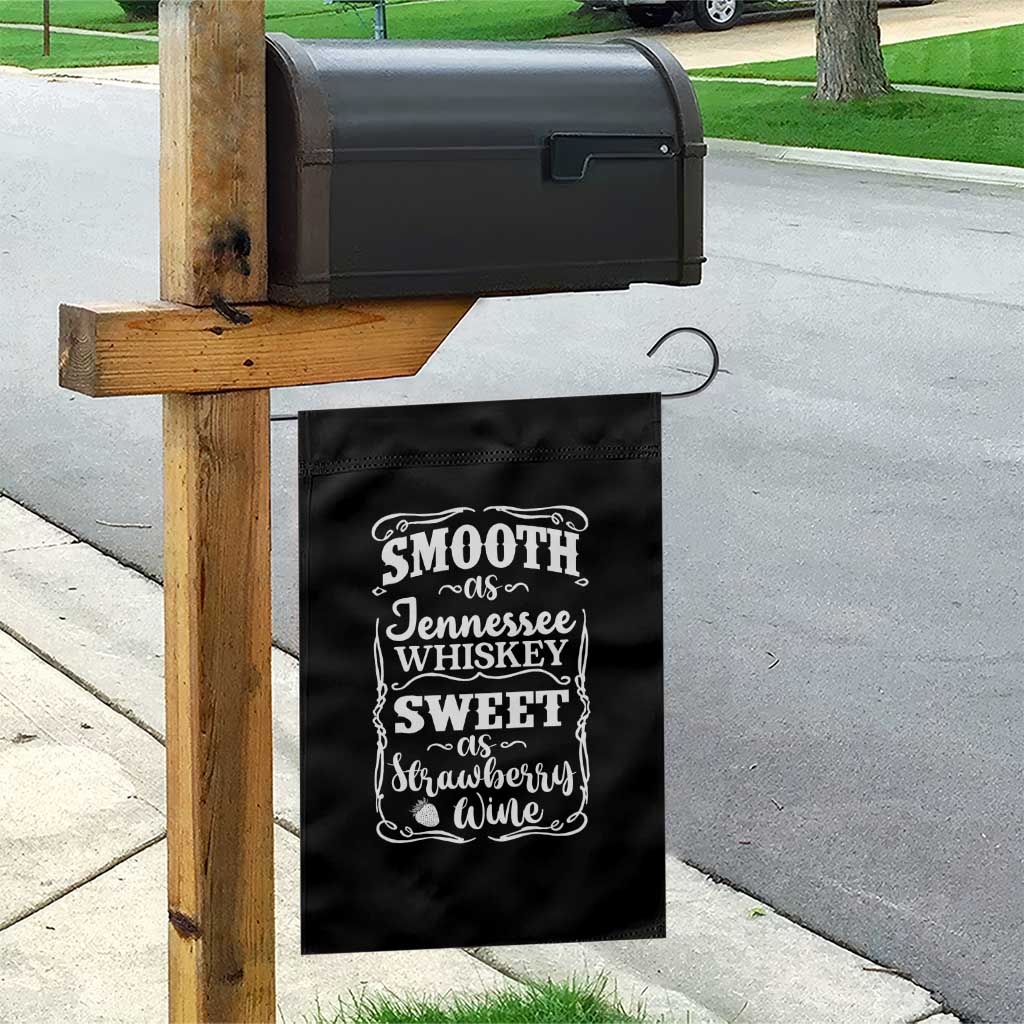 SMOOTH
as
Tennessee
WHISKEY
SWEET
as
Strawberry
Wine